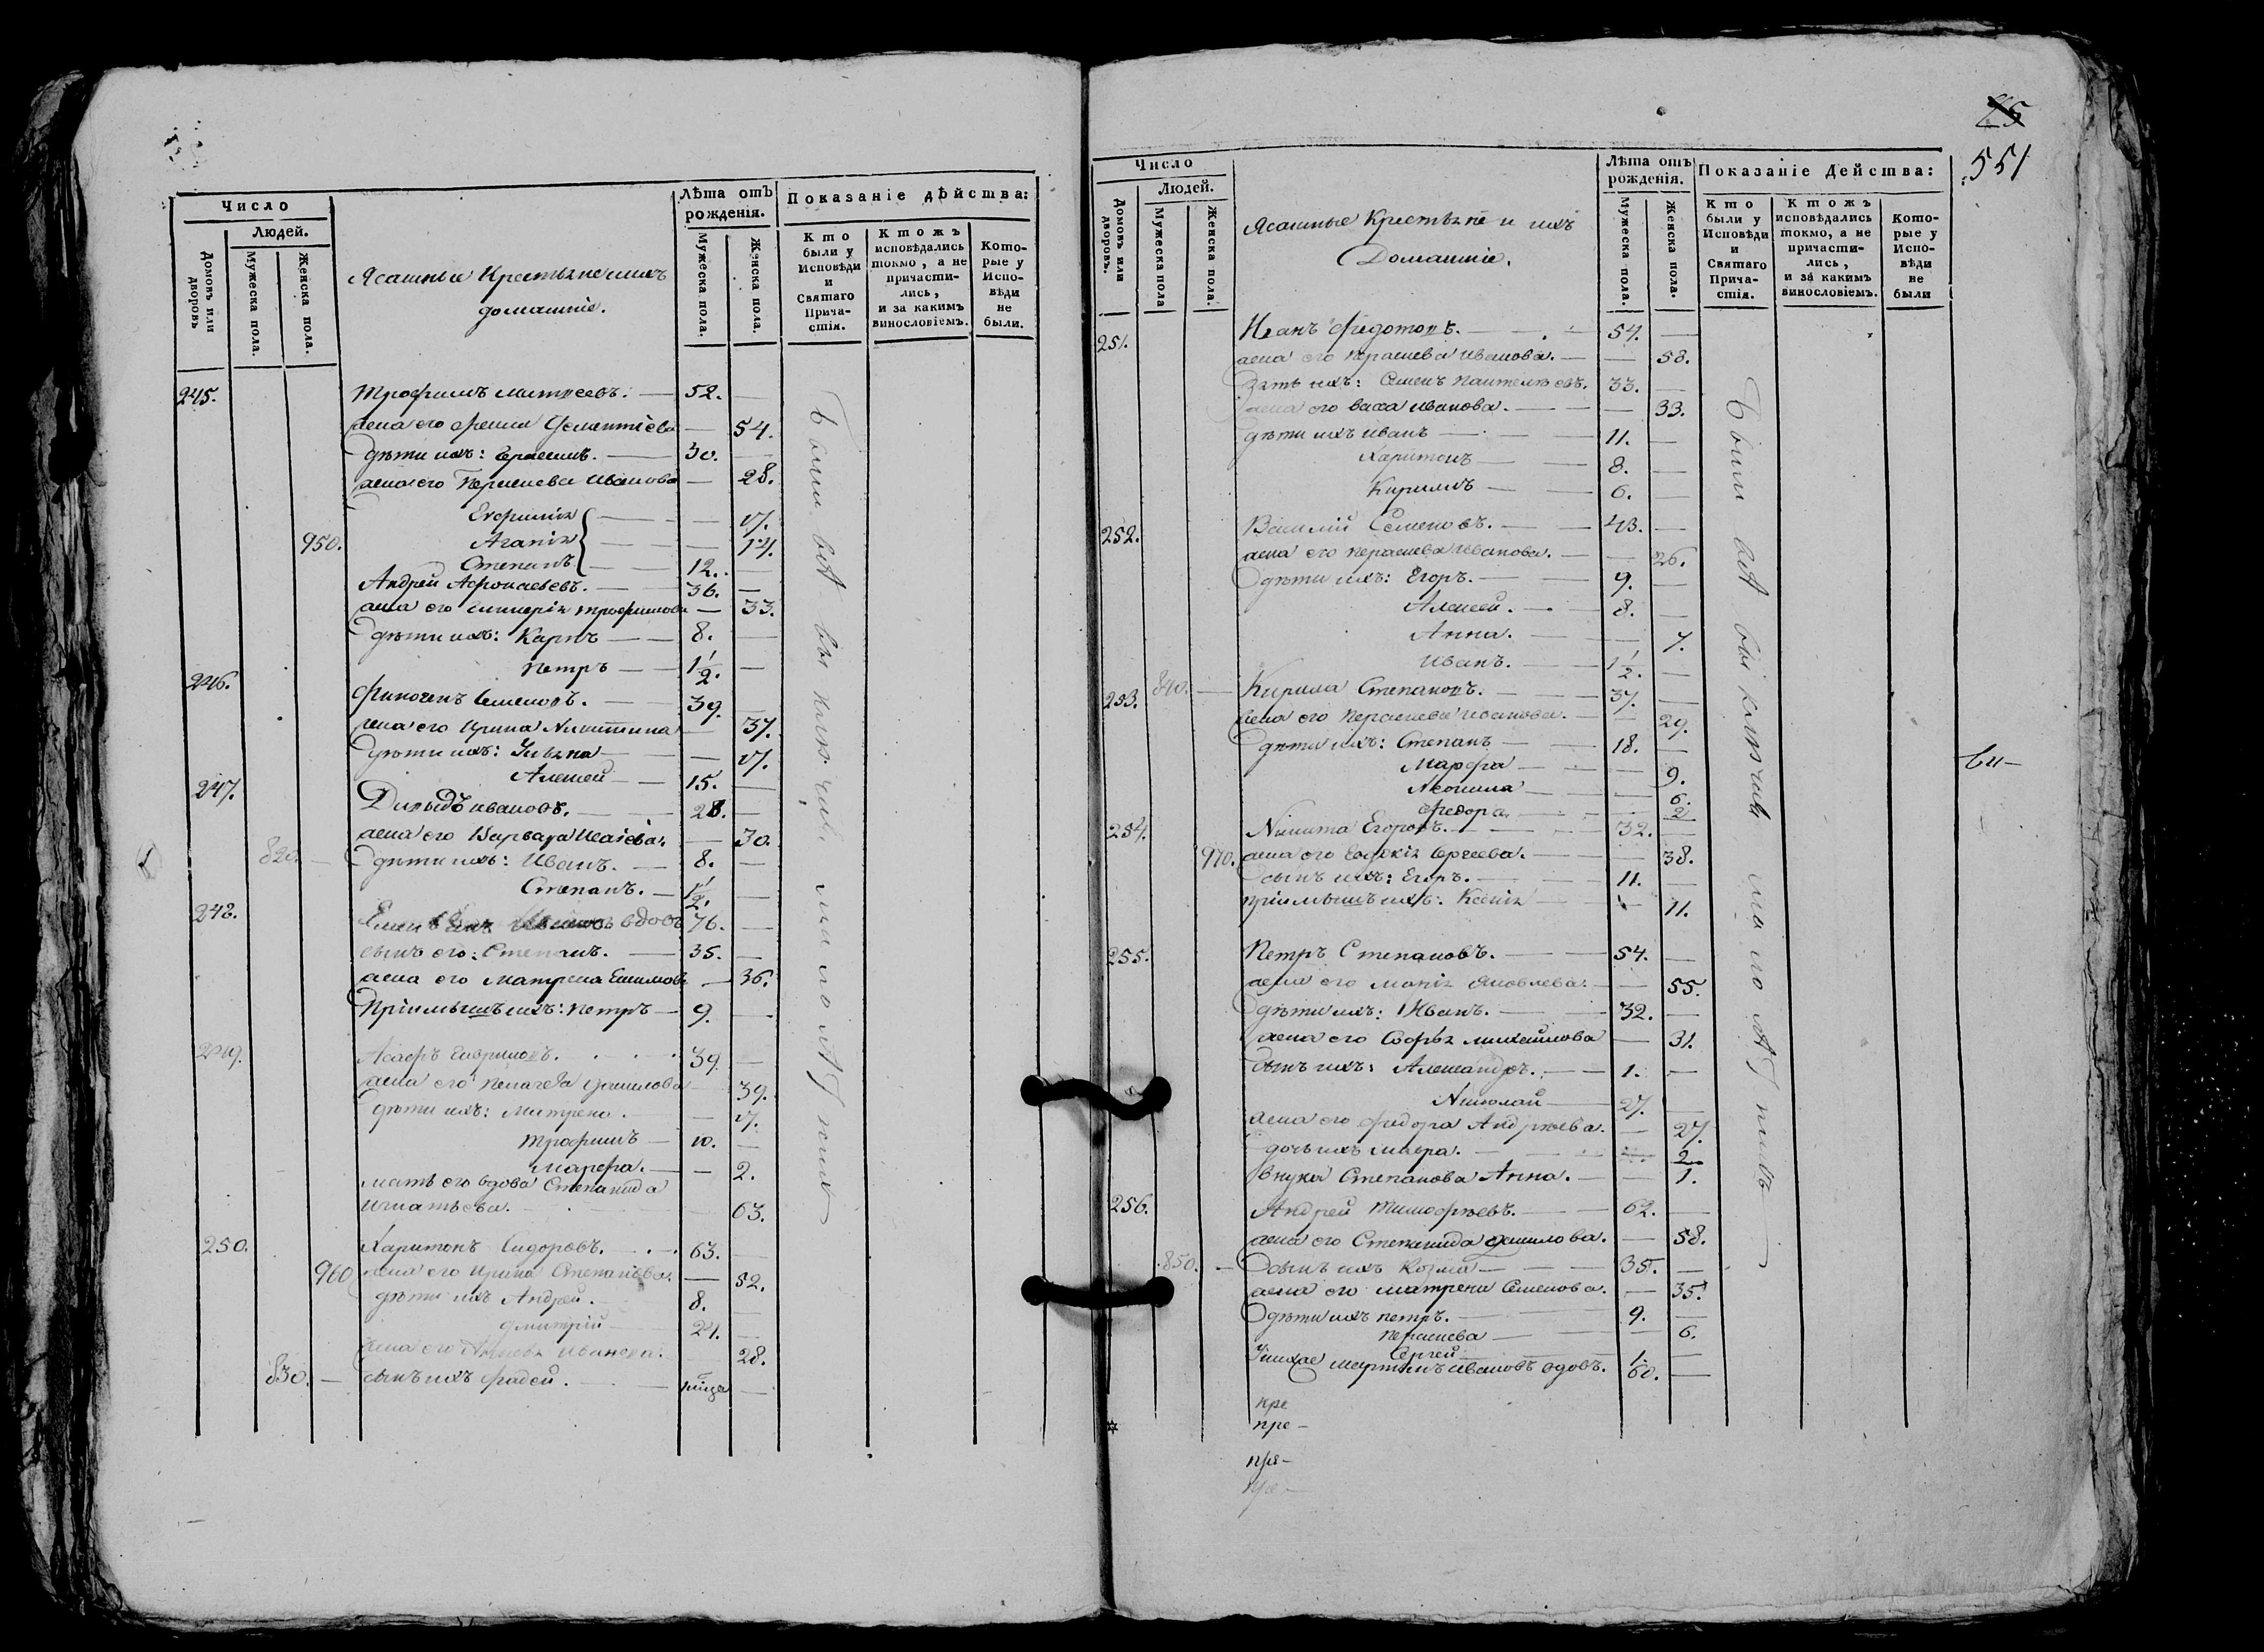 Число
Людей.
Домовъ или дворовъ
Мужеска пола.
Женска пола.
Ясашныя Крестьяне и ихъ
домашніе.
Лѣта отъ
рожденія.
Мужеска пола.
Женска пола.
Показаніе дѣйства:
Кто
были у
Исповѣди
и
Святаго
Прича-
стія.
Ктожъ
исповѣдались
токмо, а не
причасти-
лись,
и за какимъ
винословіемъ.
Кото-
рые у
Испо-
вѣди
не
были.
245. Трофимъ Матвеевъ. 52.
жена его 54.
дѣти ихъ: Герасимъ. 30.
жена его Парасковья Иванова 28.
Евфимія 17.
950. Агапія 14.
Степанъ 12.
Андрей Афонасьевъ. 36.
жена его Гликерія Трофимова 33.
дѣти ихъ: Карпъ 8.
Петръ 1 1/2.
246. Финогенъ Семеновъ. 39.
жена его Ирина Никитина 37.
дѣти ихъ: Ульяна 17.
Алексей 15.
247. Давыдъ Ивановъ. 28.
жена его Варвара Исаева. 30.
820. дѣти ихъ: Иванъ. 8.
Степанъ. 1 1/2.
248. вдовъ 76.
сынъ его: Степанъ. 35.
жена его Матрена 36.
Пріимышъ ихъ: Петръ 9.
249. Асафъ Гавриловъ. 39.
жена его Пелагея Данилова 39.
дѣти ихъ: Матрена. 17.
Трофимъ 10.
Марфа. 2.
мать его вдова Степанида
Игнатьева. 63.
250. Харитонъ Сидоровъ. 63.
960 жена его Ирина Степанова. 52.
дѣти ихъ Андрей. 8.
Дмитрій 24.
жена его Иванова. 28.
830. сынъ ихъ Фадей.
25
551
Число
Людей.
Домовъ или дворовъ.
Мужеска пола
Женска пола.
Ясашные Крестьяне и ихъ
Домашніе.
Лѣта отъ
рожденія.
Мужеска пола.
Женска пола.
Показаніе Действа:
Кто
были у
Исповѣди
и
Святаго
Прича-
стія.
Ктожъ
исповѣдались
токмо, а не
причасти-
лись,
и за какимъ
винословіемъ.
Кото-
рые у
Испо-
вѣди
не
были
251. Иванъ Федотовъ. 54.
жена его Парасковья Иванова. 58.
Зять ихъ: Семенъ Пантелѣевъ. 33.
жена его Васса Иванова. 33.
дѣти ихъ Иванъ 11.
Харитонъ 8.
Кирилъ 6.
252. Василій Семеновъ. 43.
жена его Парасковья Иванова. 26.
дѣти ихъ: Егоръ. 9.
Алексей. 8.
Анна. 7.
Иванъ. 1 1/2.
253. 840. Кирила Степановъ. 37.
жена его Парасковья Иванова. 29.
дѣти ихъ: Степанъ 18.
Марфа 9.
Акилина 6.
Федора 2
254. Никита Егоровъ. 32.
970. жена его Евдокія Сергеева. 38.
сынъ ихъ: Егоръ. 11.
пріимышъ ихъ: Ксенія 11.
255. Петръ Степановъ. 54.
жена его Марія Яковлева. 55.
дѣти ихъ: Иванъ. 32.
жена его Софья Михайлова 31.
сынъ ихъ: Александръ. 1.
Николай 27.
жена его Федора Андрѣева. 27.
дочь ихъ Мавра. 2.
внука Степанова Анна. 1.
256. Андрей Тимофѣевъ. 62.
жена его Степанида Данилова. 58.
850. сынъ ихъ Козма 35.
жена его Матрена Семенова. 35.
дѣти ихъ Петръ. 9.
Парасковья 6.
Сергей 1.
Мартынъ Ивановъ вдовъ. 60.
пре
пре-
пре-
пре-